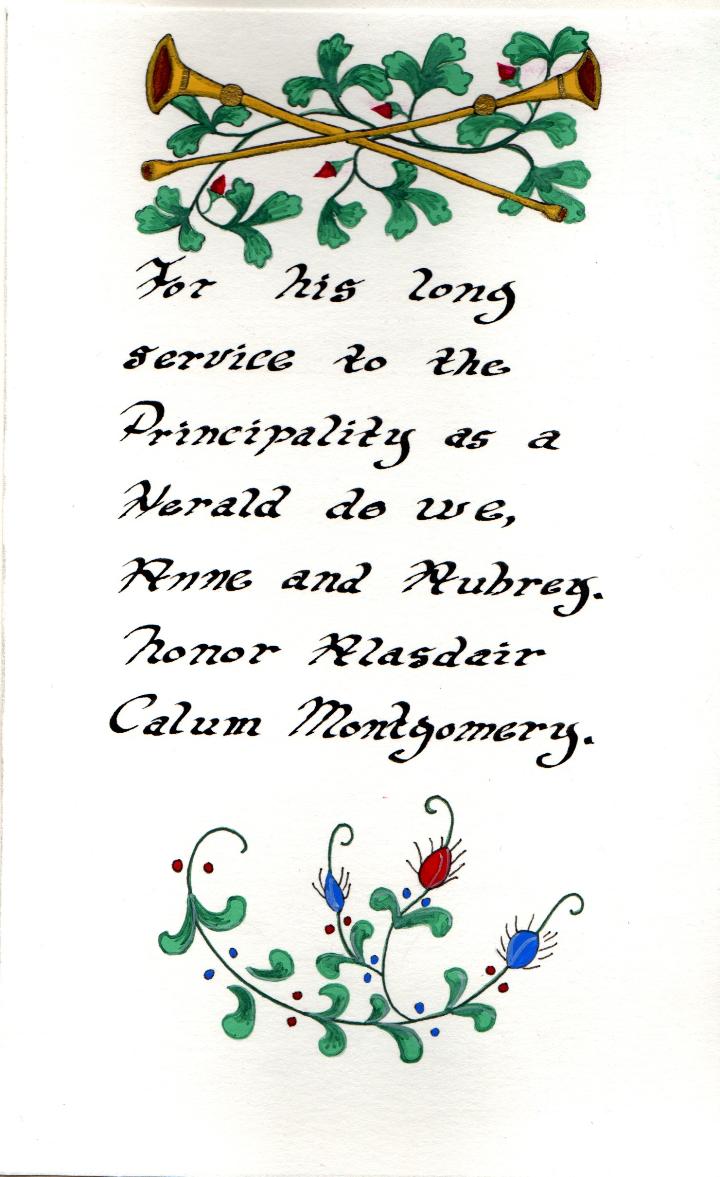 For his long
service to the
Principality as a
Herald do we,
Anne and Aubrey.
honor Alasdair
Calum Montgomery.